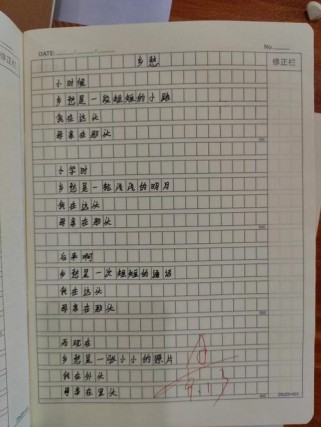 DATE:
No
乡愁
修正栏
小时候
乡愁是一段短短的小路
我在这头
母亲在那头
小学时
乡愁是一轮浅浅的明月
我在这头
母亲在那头
乡愁是一次短短的通话
我在这头
母亲在那头
而现在
乡愁是一张小小的照片
我在外头
母亲在里头
9.13